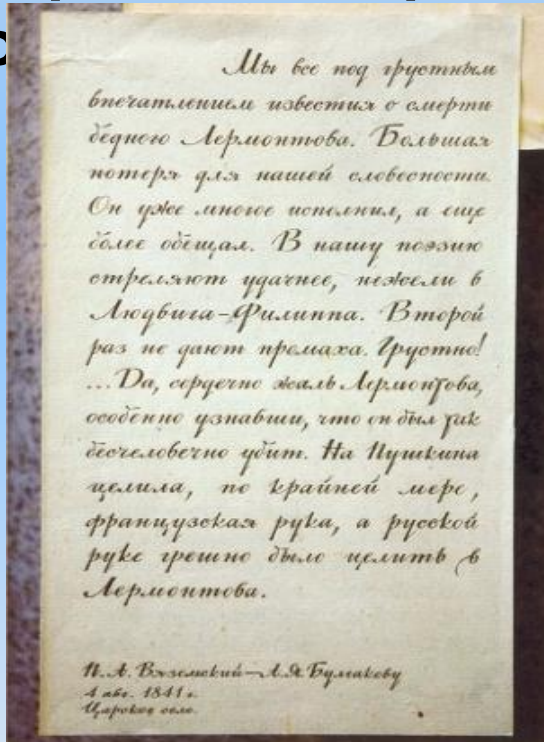 Мы все под грустным
впечатлением известия о смерти
бедного Лермонтова. Большая
потеря для нашей словесности.
Он уже многое исполнил, а еще
более обещал. В нашу поэзию
стреляют удачнее, нежели в
Людвига-Филиппа. Второй
раз не дают промаха. Грустно!
...Да, сердечно жаль Лермонтова,
особенно узнавши, что он был так
бесчеловечно убит. На Пушкина
целила, по крайней мере,
французская рука, а русской
руке грешно было целить в
Лермонтова.
П. А. Вяземский – А. Я. Булгакову
4 авг. 1841 г.
Царское село.